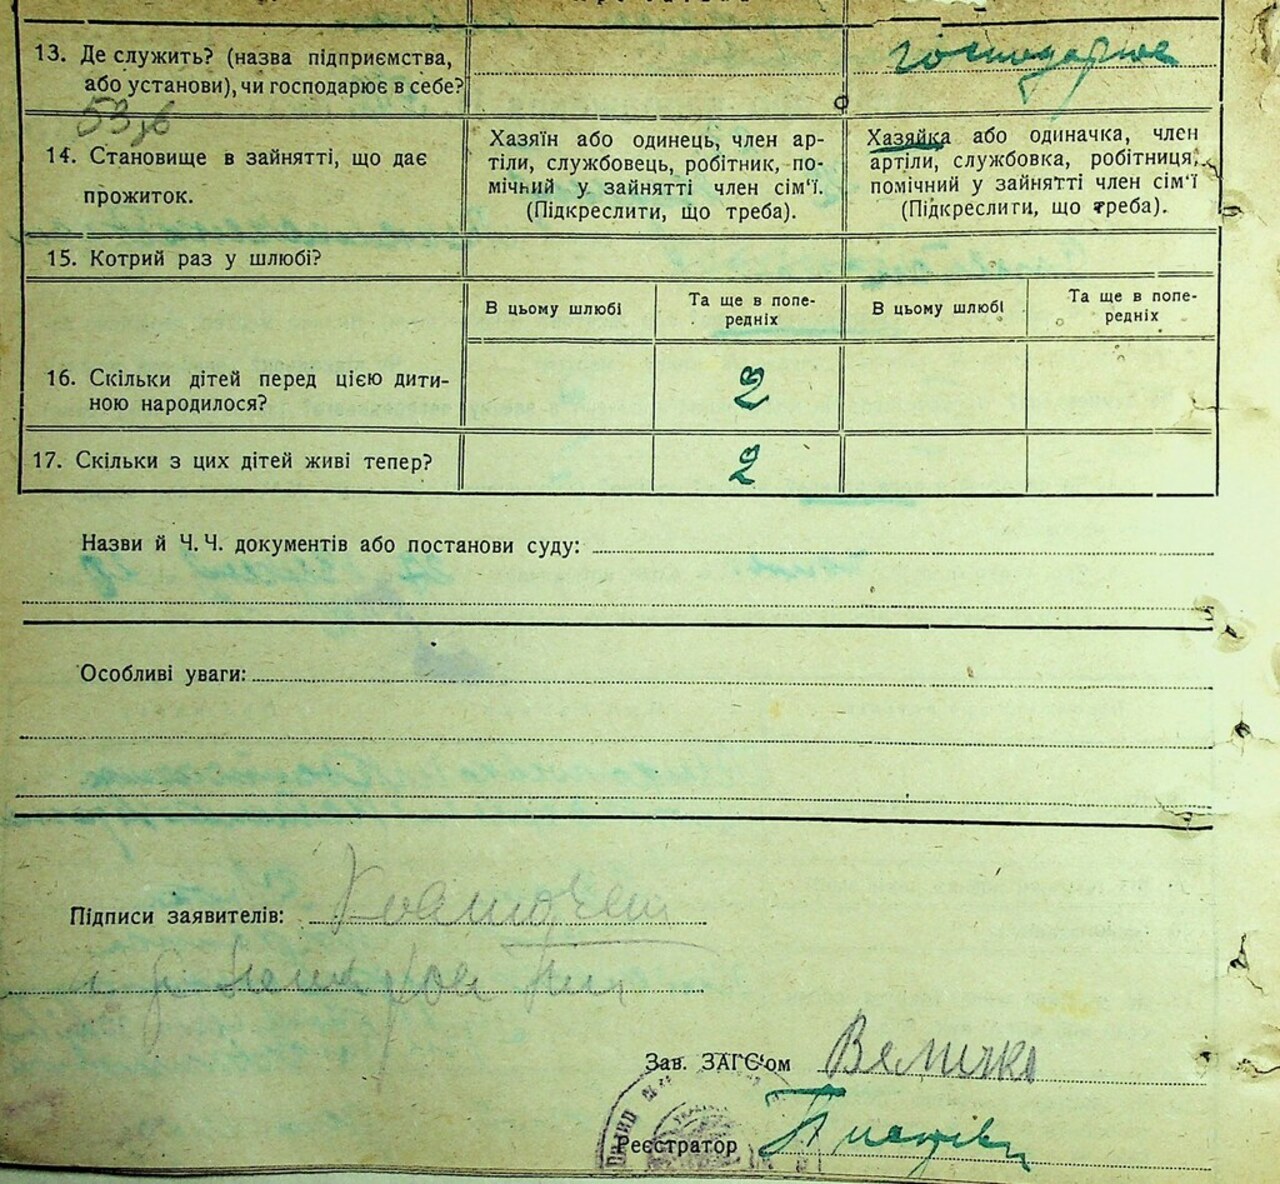 13. Де служить? (назва підприємства,
або установи), чи господарює в себе?
господарює
53
14. Становище в зайнятті, що дає
прожиток.
Хазяїн або одинець, член ар-
тіли, службовець, робітник, по-
мічний у зайнятті член сім‘ї.
(Підкреслити, що треба).
Хазяйка або одиначка, член
артіли, службовка, робітниця,
помічний у зайнятті член сім‘ї
(Підкреслити, що треба).
15. Котрий раз у шлюбі?
В цьому шлюбі
Та ще в попе-
редніх
В цьому шлюбі
Та ще в попе-
редніх
16. Скільки дітей перед цією дити-
ною народилося?
2
17. Скільки з цих дітей живі тепер?
2
Назви й Ч. Ч. документів або постанови суду:
Особливі уваги:
Підписи заявителів:
Зав. ЗАГС‘ом Величко
Реєстратор